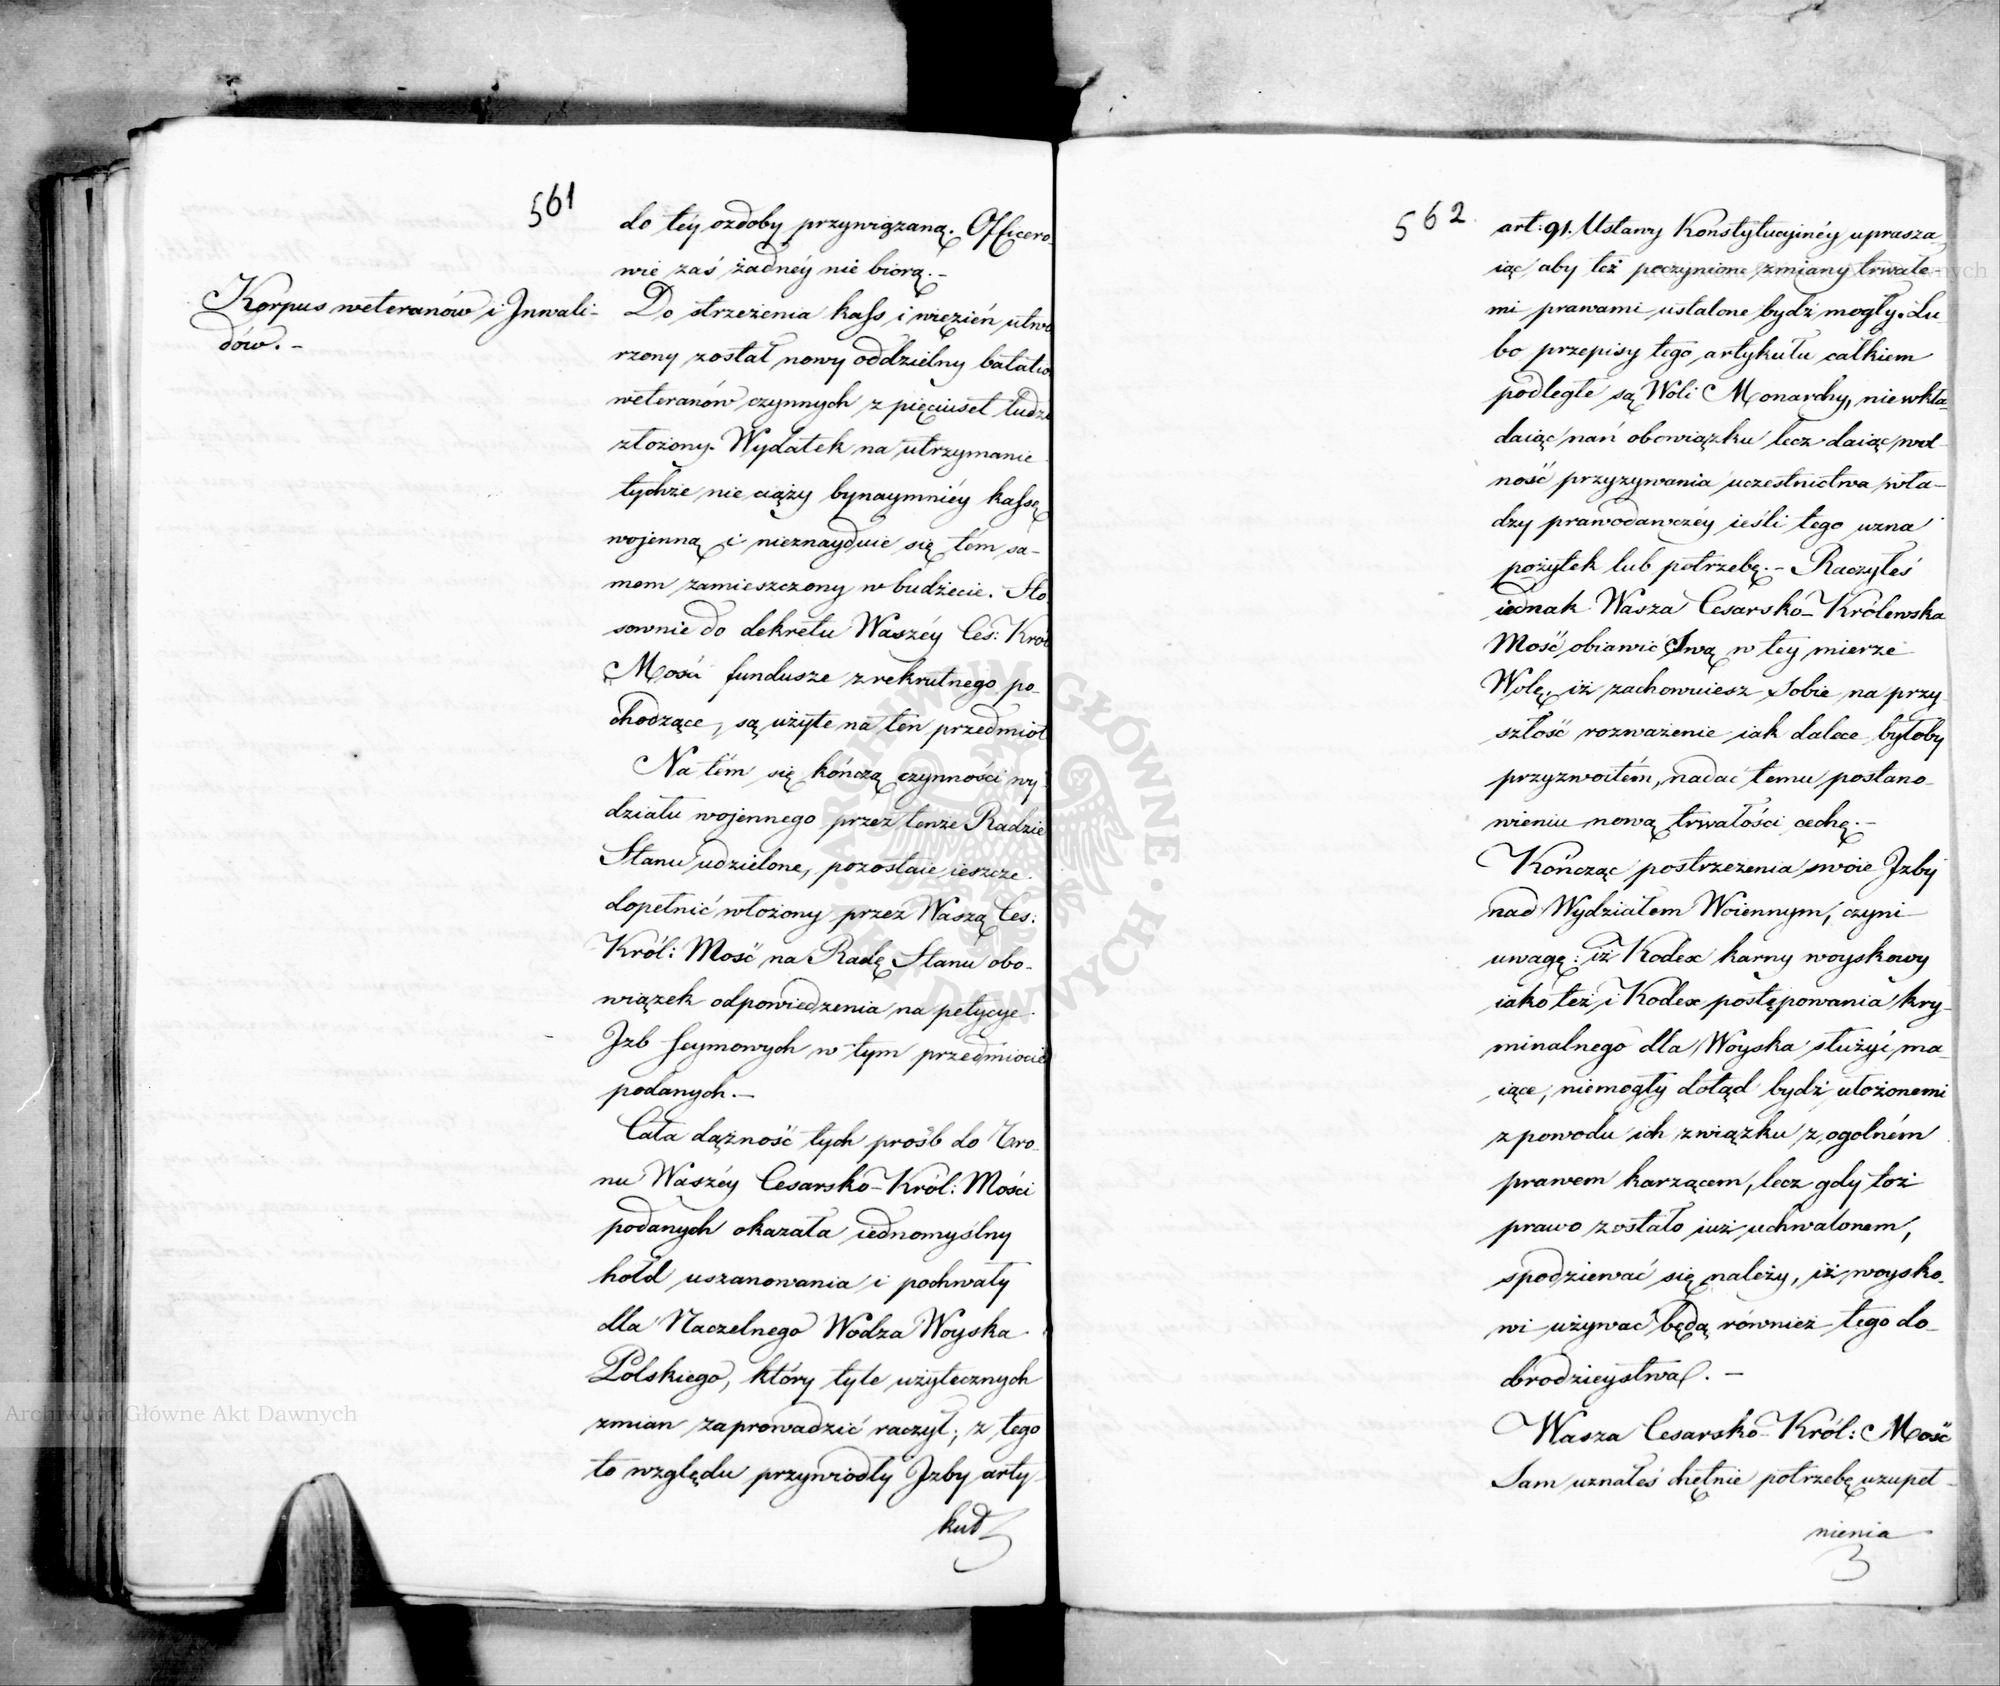 561
do téy ozdoby przywiązaną. Officero-
wie zaś żadnéy nie biorą.-
Korpus weteranów i Jnwali-
dów.-
Do strzeżenia kass i więzień utwo
rzony został nowy oddzielny batalio
weteranów czynnych z pięciuset ludzi
złożony. Wydatek na utrzymanie
tychże nie ciąży bynaymniéy kassę
wojenną i nieznayduie się tém sa-
mem zamieszczony w budżecie. Sto-
sownie do dekretu Waszéy Ces: Król
Mości fundusze z rekrutnego po-
chodzące, są użyte na ten przedmiot
Na tém się kończą czynności wy-
działu wojennego przez tenże Radzie
Stanu udzielone, pozostaie ieszcze
dopełnić włożony przez Waszą Ces:
Król: Mość na Radę Stanu obo-
wiązek odpowiedzenia na petycye
Jzb Seymowych w tym przedmiocie
podanych.-
Cała dążność tych prośb do Tro-
nu Waszéy Cesarsko-Król: Mości
podanych okazała iednomyślny
hołd uszanowania i pochwały
dla Naczelnego Wodza Woyska
Polskiego, który tyle użytecznych
zmian zaprowadzić raczył; z tego
to względu przywiodły Jzby arty-
kuł
562.
art: 91. Ustawy Konstytucyinéy uprasza-
iąc aby też poczynione zmiany trwałe-
mi prawami ustalone bydź mogły. Lu-
bo przepisy tego artykułu całkiem
podległe są Woli Monarchy, niewkła-
daiąc nań obowiązku lecz daiąc wol-
ność przyzywania uczestnictwa wła-
dzy prawodawczéy ieśli tego uzna
pożytek lub potrzebę.- Raczyłeś
iednak Wasza Cesarsko-Królewska
Mość obiawić Swą w tey mierze
Wolę, iż zachowuiesz Sobie na przy-
szłość rozważenie iak dalece byłoby
przyzwoitém, nadać temu postano-
wieniu nową trwałości cechę.-
Kończąc postrzeżenia swoie Jzby
nad Wydziałem Woiennym, czyni
uwagę: iż Kodex karny woyskowy
iako też i Kodex postępowania kry-
minalnego dla Woyska służyć ma-
iące, niemogły dotąd bydź ułożonemi
z powodu ich związku z ogolném
prawem karzącem, lecz gdy toż
prawo zostało iuż uchwalonem,
spodziewać się należy, iż woysko-
wi używać będą również tego do-
brodzieystwa.-
Wasza Cesarsko-Król: Mość
Sam uznałeś chętnie potrzebę uzupeł-
nienia
Archiwum Główne Akt Dawnych
ARCHIWUM GŁÓWNE AKT DAWNYCH